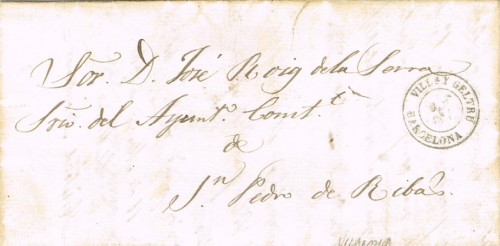 Sor. D. José Roig de la Serra
Srio. del Ayunto. Constl.
de
Sn. Pedro de Ribas.
VILLA Y GELTRU
BARCELONA